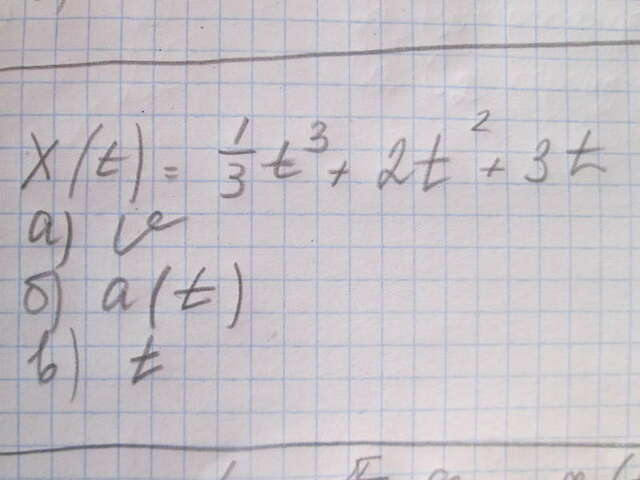 X(t) = 1/3 t³ + 2t² + 3t
а) v
б) a(t)
в) t